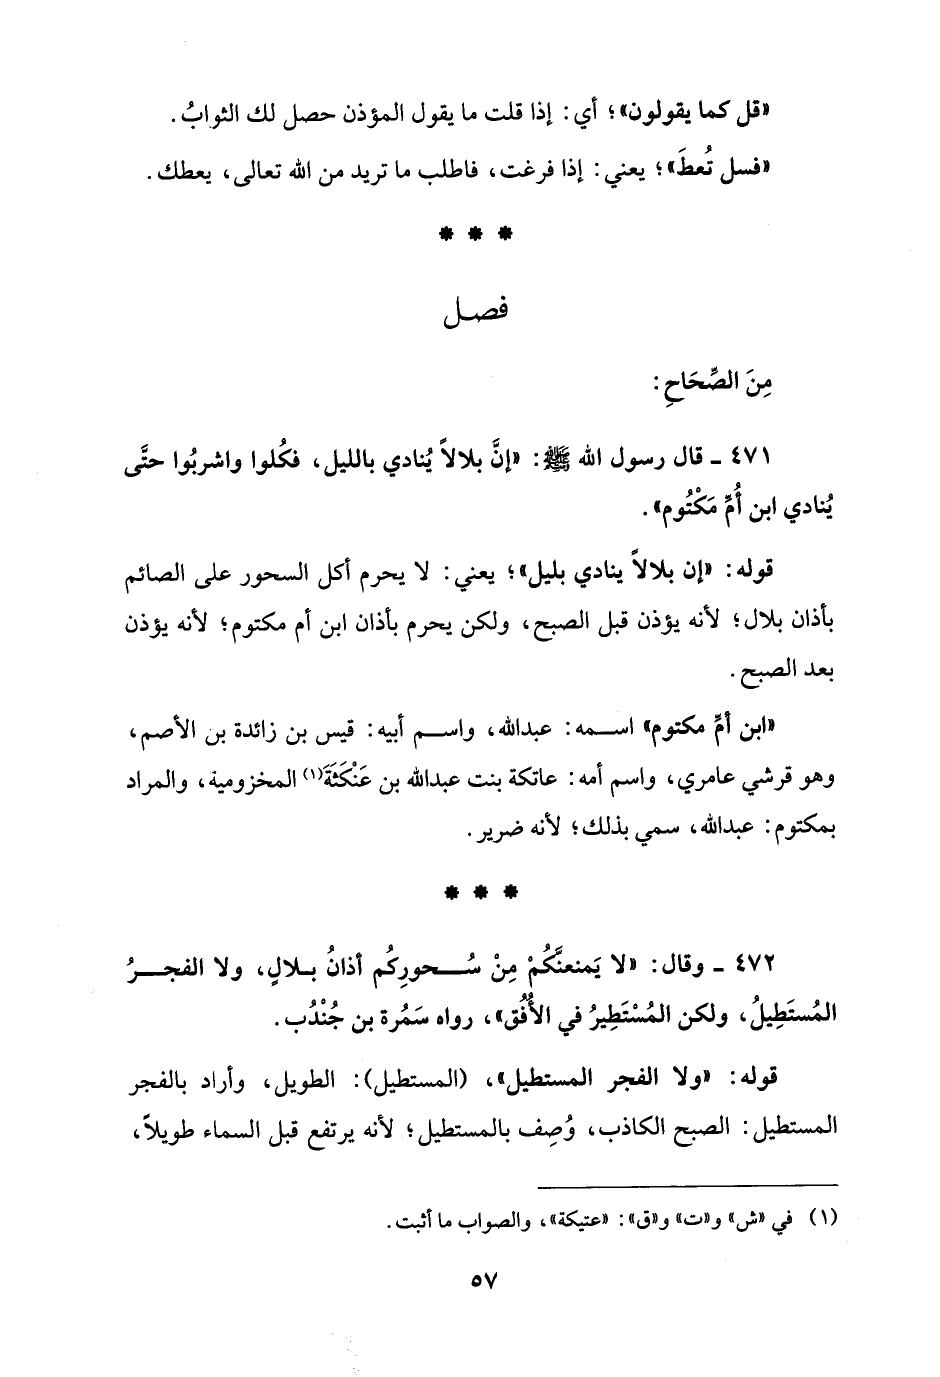 «قل كما يقولون»؛ أي: إذا قلت ما يقول المؤذن حصل لك الثوابُ.
«فسل تُعطَ»؛ يعني: إذا فرغت، فاطلب ما تريد من الله تعالى، يعطك.
* * *
فصل
مِنَ الصِّحَاحِ:
٤٧١ ـ قال رسول الله ﷺ: «إنَّ بلالاً يُنادي بالليل، فكُلوا واشربُوا حتَّى
يُنادي ابن أُمِّ مَكْتُوم».
قوله: «إن بلالاً ينادي بليل»؛ يعني: لا يحرم أكل السحور على الصائم
بأذان بلال؛ لأنه يؤذن قبل الصبح، ولكن يحرم بأذان ابن أم مكتوم؛ لأنه يؤذن
بعد الصبح.
«ابن أمِّ مكتوم» اسمه: عبدالله، واسم أبيه: قيس بن زائدة بن الأصم،
وهو قرشي عامري، واسم أمه: عاتكة بنت عبدالله بن عَنْكَثَةَ(١) المخزومية، والمراد
بمكتوم: عبدالله، سمي بذلك؛ لأنه ضرير.
* * *
٤٧٢ ـ وقال: «لا يَمنعنَّكُمْ مِنْ سُحورِكُم أذانُ بلالٍ، ولا الفجرُ
المُستَطِيلُ، ولكن المُسْتَطِيرُ في الأُفُق»، رواه سَمُرة بن جُنْدُب.
قوله: «ولا الفجر المستطيل»، (المستطيل): الطويل، وأراد بالفجر
المستطيل: الصبح الكاذب، وُصِف بالمستطيل؛ لأنه يرتفع قبل السماء طويلاً،
(١) في «ش» و«ت» و«ق»: «عتيكة»، والصواب ما أثبت.
٥٧